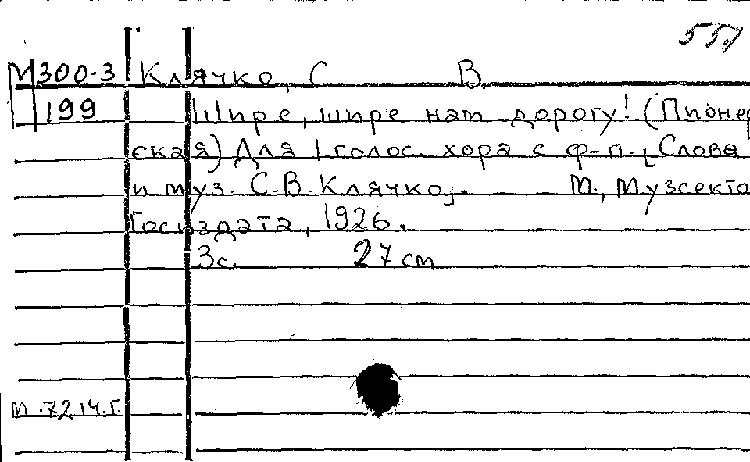 551
М300-3 Клячко, С В.
199 Шире, шире нат дорогу! (Пионер
ская) Для 1 голос. хора с ф-п. [Слова
и муз. С.В. Клячко]. - М., Музсекто
Госиздата, 1926.
3с. 27 см
М.7214.Г.